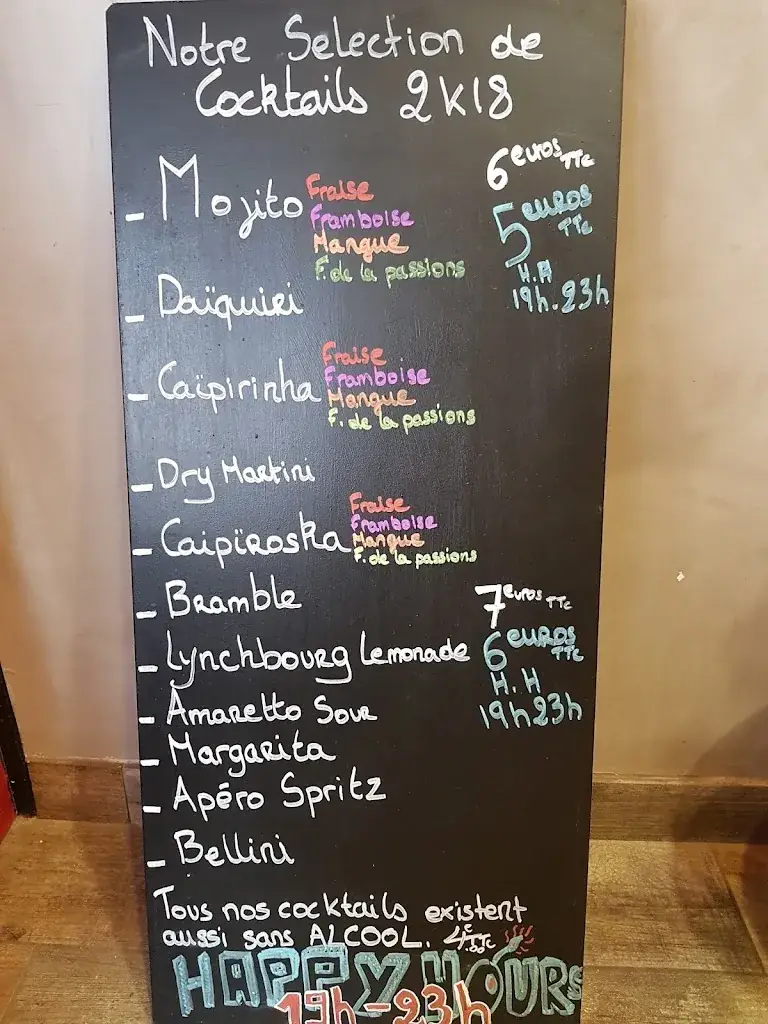 Notre Selection de
Cocktails 2K18
6 euros TTc
- Mojito Fraise
Framboise
Mangue
F. de la passions
5 euros TTc
H.H
19h.23h
- Daïquiri
- Caïpirinha Fraise
Framboise
Mangue
F. de la passions
- Dry Martini
- Caipïroska Fraise
Framboise
Mangue
F. de la passions
- Bramble
7 euros TTc
- Lynchbourg Lemonade
6 euros TTc
H.H
19h23h
- Amaretto Sour
- Margarita
- Apéro Spritz
- Bellini
Tous nos cocktails existent
aussi sans ALCOOL. 4€.00 TTc
HAPPY HOURS
19h-23h